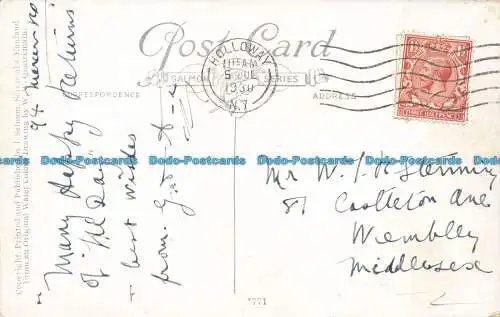 Post Card
SALMON SERIES
CORRESPONDENCE
ADDRESS
HOLLOWAY
5 JUL
1930
N.7
THREE HALFPENCE
94
Many Happy Returns
of the Day
& best wishes
from.
Mr W.
81 Castleton Ave
Wembley
Middlesex
*771
Copyright. Printed and Published by J. Salmon, Sevenoaks, England
From an Original Water Colour Drawing by W. Quatremain.
Dodo-Postcards Dodo-Postcards Dodo-Postcards Dodo-Postcards Dodo-Postcards